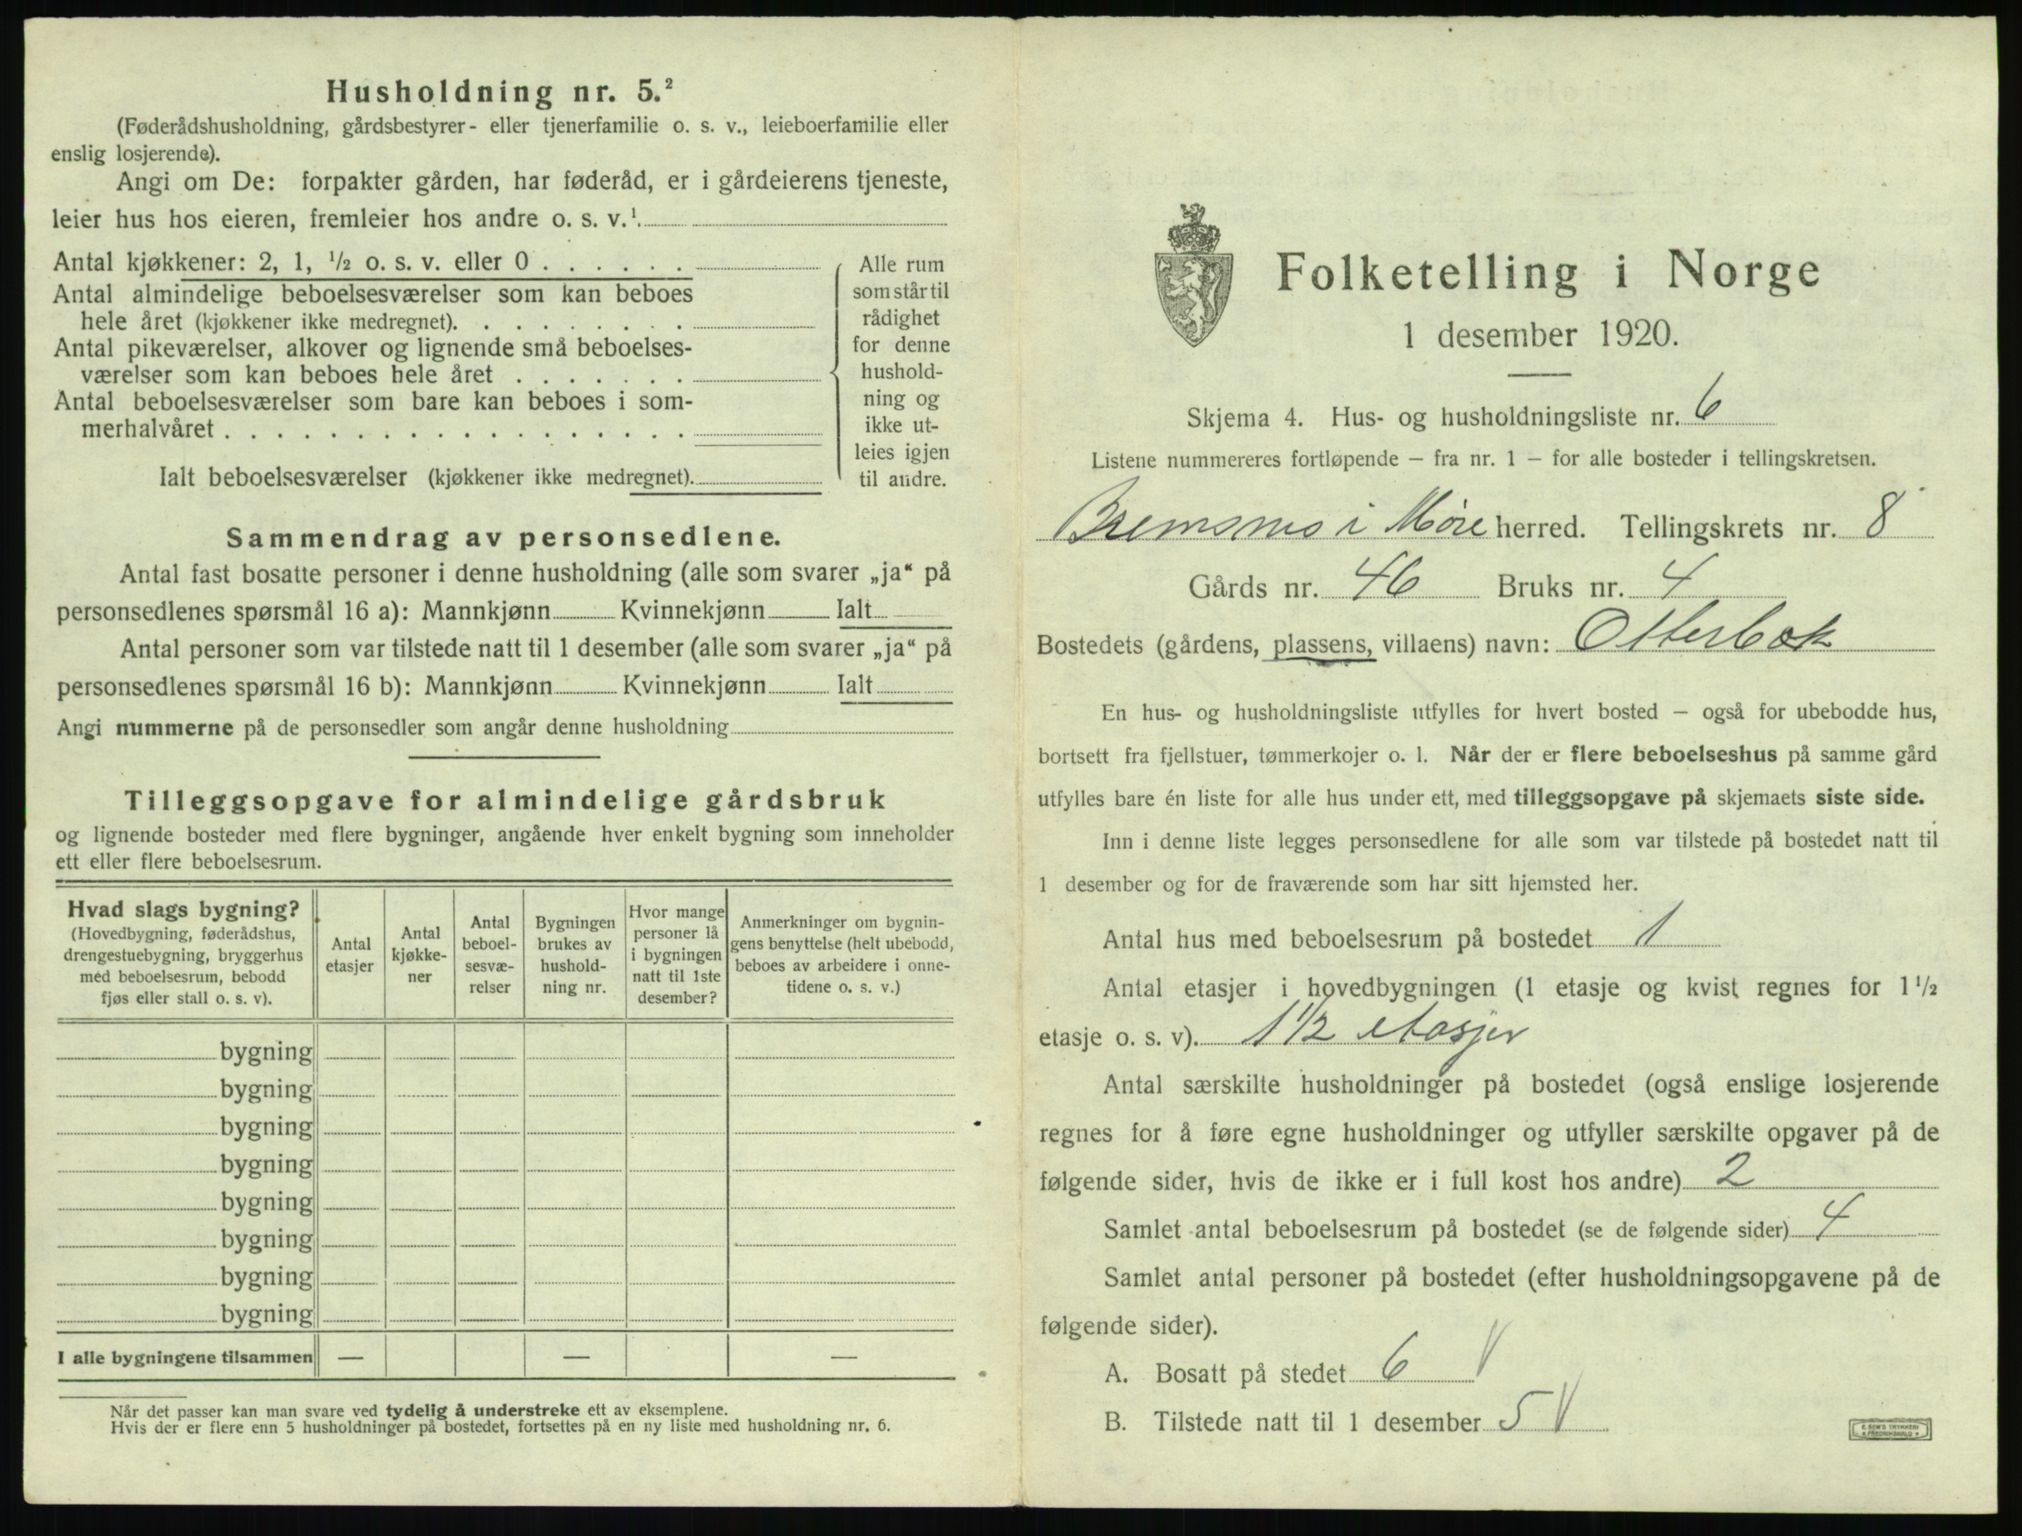 Husholdning nr. 5.²
(Føderådshusholdning, gårdsbestyrer- eller tjenerfamilie o. s. v., leieboerfamilie eller
enslig losjerende).
Angi om De: forpakter gården, har føderåd, er i gårdeierens tjeneste,
leier hus hos eieren, fremleier hos andre o. s. v.¹.
Antal kjøkkener: 2, 1, ½ o. s. v. eller 0 . . . . . .
Antal almindelige beboelsesværelser som kan beboes
hele året (kjøkkener ikke medregnet). . . . . . . . .
Antal pikeværelser, alkover og lignende små beboelses-
værelser som kan beboes hele året . . . . . . .
Antal beboelsesværelser som bare kan beboes i som-
merhalvåret . . . . . . . . . . . . . . . . . .
Ialt beboelsesværelser (kjøkkener ikke medregnet).
Alle rum
som står til
rådighet
for denne
hushold-
ning og
ikke ut-
leies igjen
til andre.
Sammendrag av personsedlene.
Antal fast bosatte personer i denne husholdning (alle som svarer „ja“ på
personsedlenes spørsmål 16 a): Mannkjønn Kvinnekjønn Ialt
Antal personer som var tilstede natt til 1 desember (alle som svarer „ja“ på
personsedlenes spørsmål 16 b): Mannkjønn Kvinnekjønn Ialt
Angi nummerne på de personsedler som angår denne husholdning
Tilleggsopgave for almindelige gårdsbruk
og lignende bosteder med flere bygninger, angående hver enkelt bygning som inneholder
ett eller flere beboelsesrum.
Hvad slags bygning?
(Hovedbygning, føderådshus,
drengestuebygning, bryggerhus
med beboelsesrum, bebodd
fjøs eller stall o. s. v).
Antal
etasjer
Antal
kjøkke-
ner
Antal
beboel-
sesvæ-
relser
Bygningen
brukes av
hushold-
ning nr.
Hvor mange
personer lå
i bygningen
natt til 1ste
desember?
Anmerkninger om bygnin-
gens benyttelse (helt ubebodd,
beboes av arbeidere i onne-
tidene o. s. v.)
bygning
bygning
bygning
bygning
bygning
bygning
bygning
bygning
I alle bygningene tilsammen — — —
Når det passer kan man svare ved tydelig å understreke ett av eksemplene.
Hvis der er flere enn 5 husholdninger på bostedet, fortsettes på en ny liste med husholdning nr. 6.
Folketelling i Norge
1 desember 1920.
Skjema 4. Hus- og husholdningsliste nr. 6
Listene nummereres fortløpende – fra nr. 1 – for alle bosteder i tellingskretsen.
Bremsnes i Møre herred. Tellingskrets nr. 8
Gårds nr. 46 Bruks nr. 4
Bostedets (gårdens, plassens, villaens) navn: Otterbæk
En hus- og husholdningsliste utfylles for hvert bosted – også for ubebodde hus,
bortsett fra fjellstuer, tømmerkojer o. l. Når der er flere beboelseshus på samme gård
utfylles bare én liste for alle hus under ett, med tilleggsopgave på skjemaets siste side.
Inn i denne liste legges personsedlene for alle som var tilstede på bostedet natt til
1 desember og for de fraværende som har sitt hjemsted her.
Antal hus med beboelsesrum på bostedet 1
Antal etasjer i hovedbygningen (1 etasje og kvist regnes for 1½
etasje o. s. v). 1 1/2 etasjer
Antal særskilte husholdninger på bostedet (også enslige losjerende
regnes for å føre egne husholdninger og utfyller særskilte opgaver på de
følgende sider, hvis de ikke er i full kost hos andre) 2
Samlet antal beboelsesrum på bostedet (se de følgende sider) 4
Samlet antal personer på bostedet (efter husholdningsopgavene på de
følgende sider).
A. Bosatt på stedet 6 V
B. Tilstede natt til 1 desember 5 V